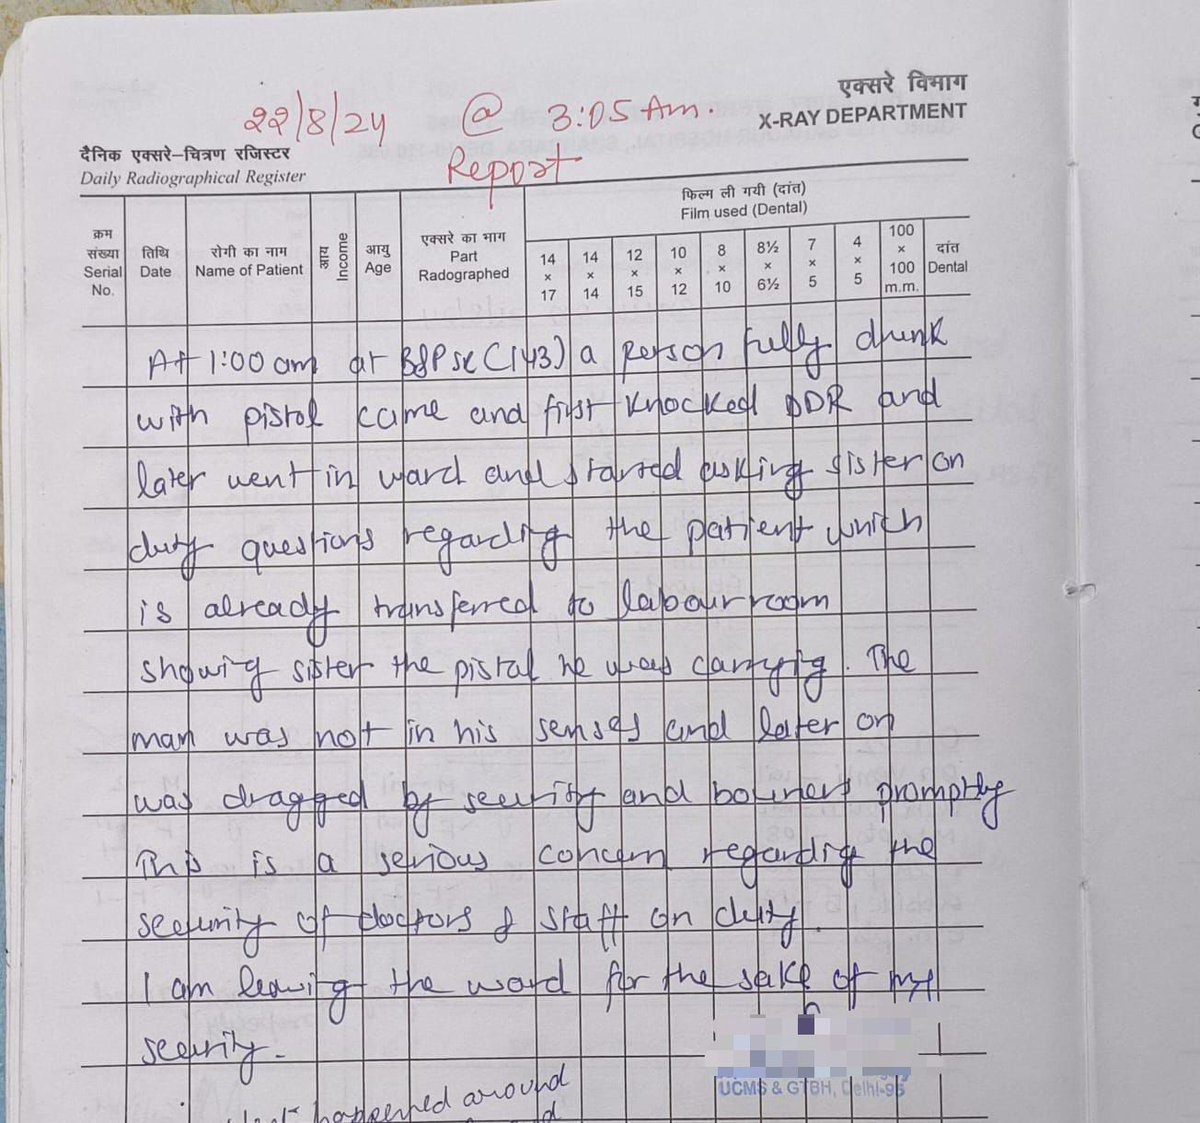 एक्सरे विभाग
X-RAY DEPARTMENT
22/8/24 @ 3:05 Am.
Report
दैनिक एक्सरे-चित्रण रजिस्टर
Daily Radiographical Register
क्रम संख्या Serial No.
तिथि Date
रोगी का नाम Name of Patient
आय Income
आयु Age
एक्सरे का भाग Part Radographed
फिल्म ली गयी (दांत)
Film used (Dental)
14 × 17
14 × 14
12 × 15
10 × 12
8 × 10
8½ × 6½
7 × 5
4 × 5
100 × 100 m.m.
दांत Dental
At 1:00 am at (143) a person fully drunk
with pistol came and first knocked DDR and
later went in ward and started asking sister on
duty questions regarding the patient which
is already transferred to labour room
showing sister the pistol he was carrying. The
man was not in his senses and later on
was dragged by security and bouners promptly
This is a serious concern regarding the
security of doctors & staff on duty.
I am leaving the ward for the sake of my
security.
UCMS & GTBH, Delhi-95
happened around